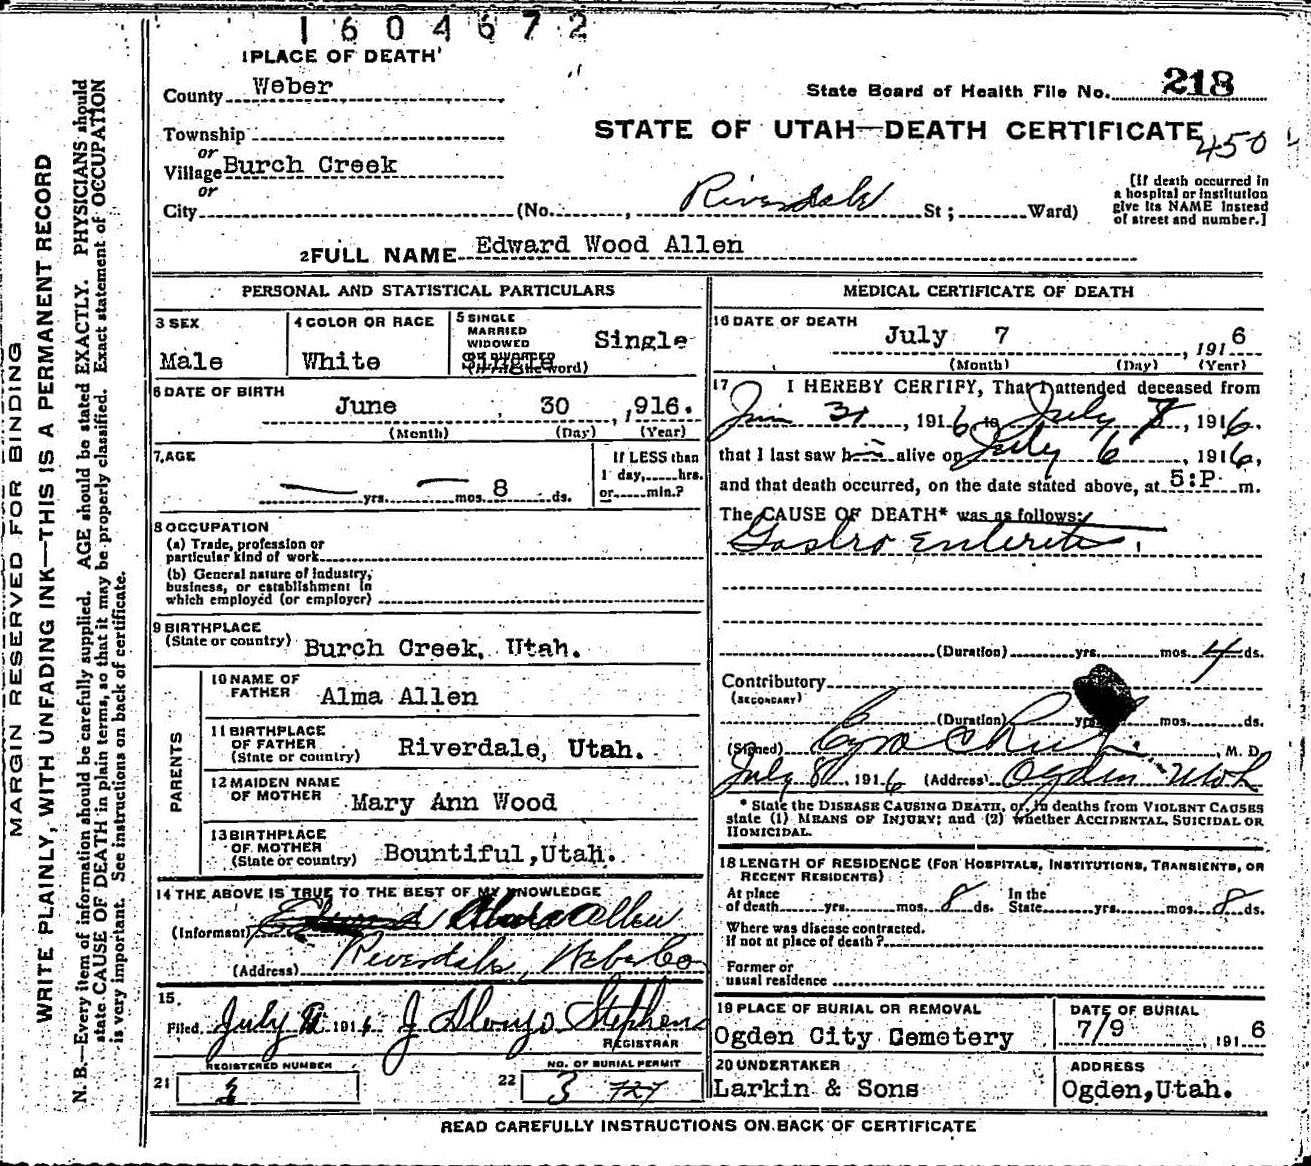 1604672
1 PLACE OF DEATH
County Weber
State Board of Health File No. 218
Township
STATE OF UTAH—DEATH CERTIFICATE
450
or
Village Burch Creek
or
City (No. , Riverdale St ; Ward)
[If death occurred in
a hospital or institution
give its NAME instead
of street and number.]
2 FULL NAME Edward Wood Allen
PERSONAL AND STATISTICAL PARTICULARS
3 SEX
Male
4 COLOR OR RACE
White
5 SINGLE
MARRIED
WIDOWED
Single
6 DATE OF BIRTH
June , 30 , 1916.
(Month) (Day) (Year)
7, AGE
— yrs. — mos. 8 ds.
If LESS than
1 day, hrs.
or min.?
8 OCCUPATION
(a) Trade, profession or
particular kind of work
(b) General nature of industry,
business, or establishment in
which employed (or employer)
9 BIRTHPLACE
(State or country) Burch Creek, Utah.
PARENTS
10 NAME OF
FATHER Alma Allen
11 BIRTHPLACE
OF FATHER
(State or country) Riverdale, Utah.
12 MAIDEN NAME
OF MOTHER Mary Ann Wood
13 BIRTHPLACE
OF MOTHER
(State or country) Bountiful, Utah.
14 THE ABOVE IS TRUE TO THE BEST OF MY KNOWLEDGE
(Informant) Allen
(Address) Riverdale, Weber Co
15.
Filed July 1916 J Alonzo Stephens
REGISTRAR
REGISTERED NUMBER
21
NO. OF BURIAL PERMIT
22 3 727
MEDICAL CERTIFICATE OF DEATH
16 DATE OF DEATH
July 7 , 1916
(Month) (Day) (Year)
17 I HEREBY CERTIFY, That I attended deceased from
, 1916 to July , 1916.
that I last saw h alive on July 6 , 1916,
and that death occurred, on the date stated above, at 5:P. m.
The CAUSE OF DEATH* was as follows:
Gastro Enteritis
(Duration) yrs. mos. 4 ds.
Contributory
(SECONDARY)
(Duration) yrs. mos. ds.
(Signed) , M. D.
July 8 1916 (Address) Ogden Utah
* State the DISEASE CAUSING DEATH, or, in deaths from VIOLENT CAUSES
state (1) MEANS OF INJURY; and (2) whether ACCIDENTAL, SUICIDAL OR
HOMICIDAL.
18 LENGTH OF RESIDENCE (FOR HOSPITALS, INSTITUTIONS, TRANSIENTS, OR
RECENT RESIDENTS)
At place
of death yrs. mos. 8 ds.
In the
State yrs. mos. 8 ds.
Where was disease contracted.
If not at place of death?
Former or
usual residence
19 PLACE OF BURIAL OR REMOVAL
Ogden City Cemetery
DATE OF BURIAL
7/9 1916
20 UNDERTAKER
Larkin & Sons
ADDRESS
Ogden, Utah.
READ CAREFULLY INSTRUCTIONS ON BACK OF CERTIFICATE
MARGIN RESERVED FOR BINDING
WRITE PLAINLY, WITH UNFADING INK—THIS IS A PERMANENT RECORD
N. B.—Every item of information should be carefully supplied. AGE should be stated EXACTLY. PHYSICIANS should
state CAUSE OF DEATH in plain terms, so that it may be properly classified. Exact statement of OCCUPATION
is very important. See instructions on back of certificate.